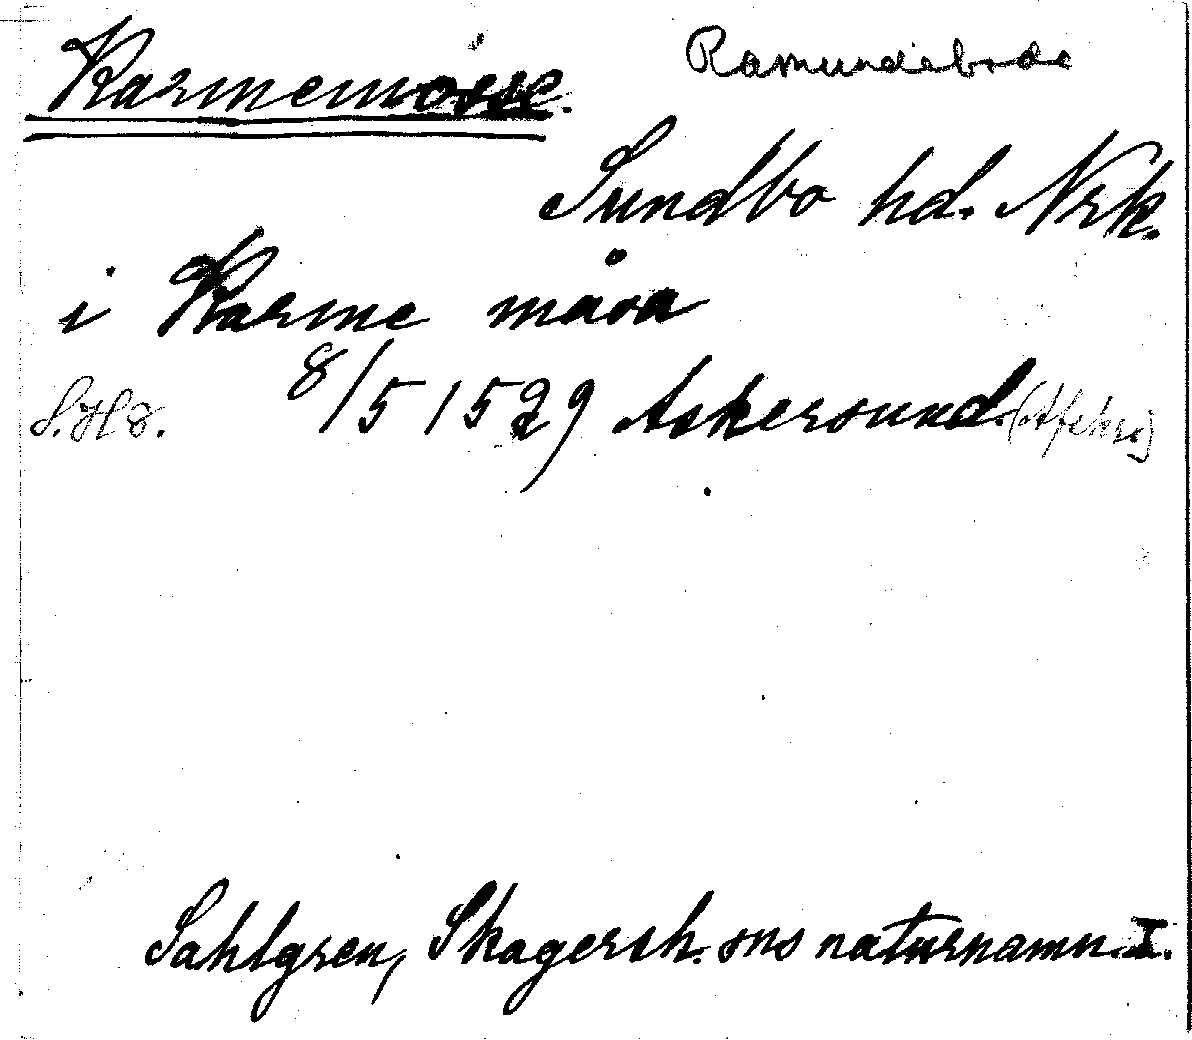 Karmemosse. Ramundeboda
Sundbo hd. Nrk.
i Karme måsa
S.H 8. 8/5 1529 Askersund. (Afskr.)
Sahlgren, Skagersh. sns naturnamn. I.